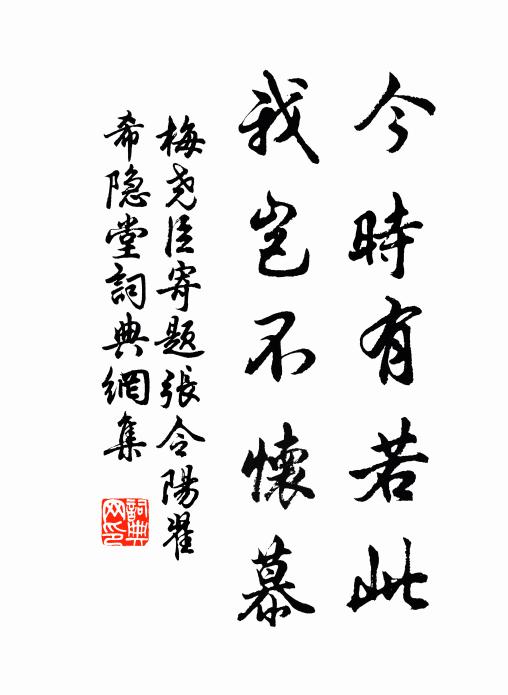 今時有若此
我豈不懷慕
梅堯臣寄題張令陽翟
希隐堂詞典網集
詞典
网印